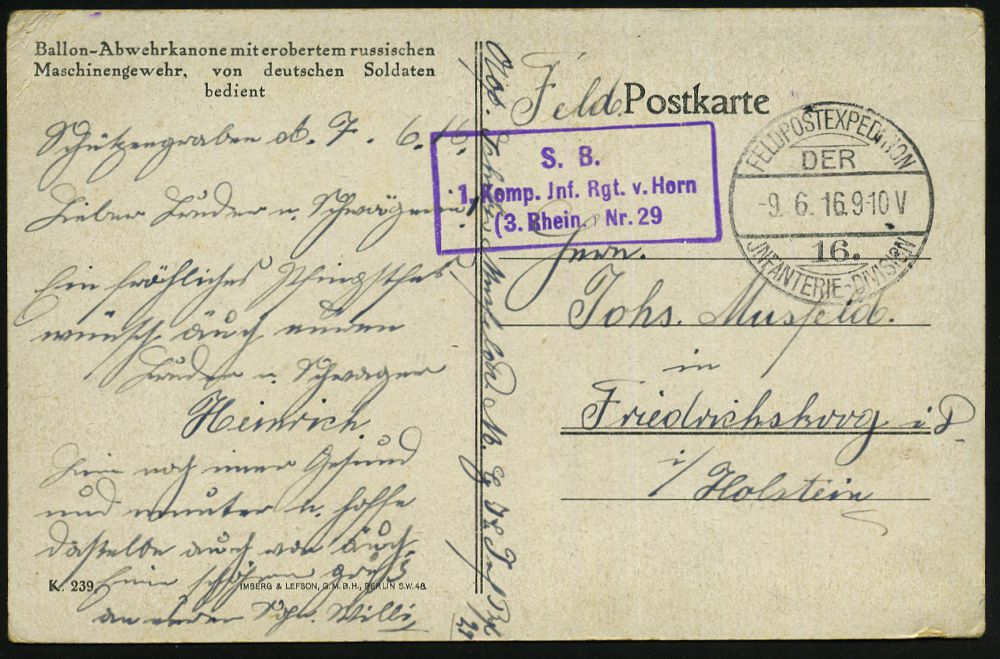 Ballon-Abwehrkanone mit erobertem russischen
Maschinengewehr, von deutschen Soldaten
bedient
Schützengraben ob. 7. 6. 16.
Lieber Bruder u. Schwägerin
Ein fröhliches Pfingstfest
wünsch äuch euern
Bruder u. Schwager
Heinrich
Bin noch imer Gesund
und munter u. hoffe
dasselbe auch von äuch.
Einen schönen Gruß
an euern Willi,
K. 239.
IMBERG & LEFSON, G.M.B.H., BERLIN S.W. 48.
Feld Postkarte
S. B.
1. Komp. Jnf. Rgt. v. Horn
(3. Rhein. Nr. 29
FELDPOSTEXPEDITION
DER
-9. 6. 16. 9-10 V
16.
JNFANTERIE-DIVISION
Herrn.
Johs. Musfeld.
in
Friedrichskoog i. D
i/Holstein